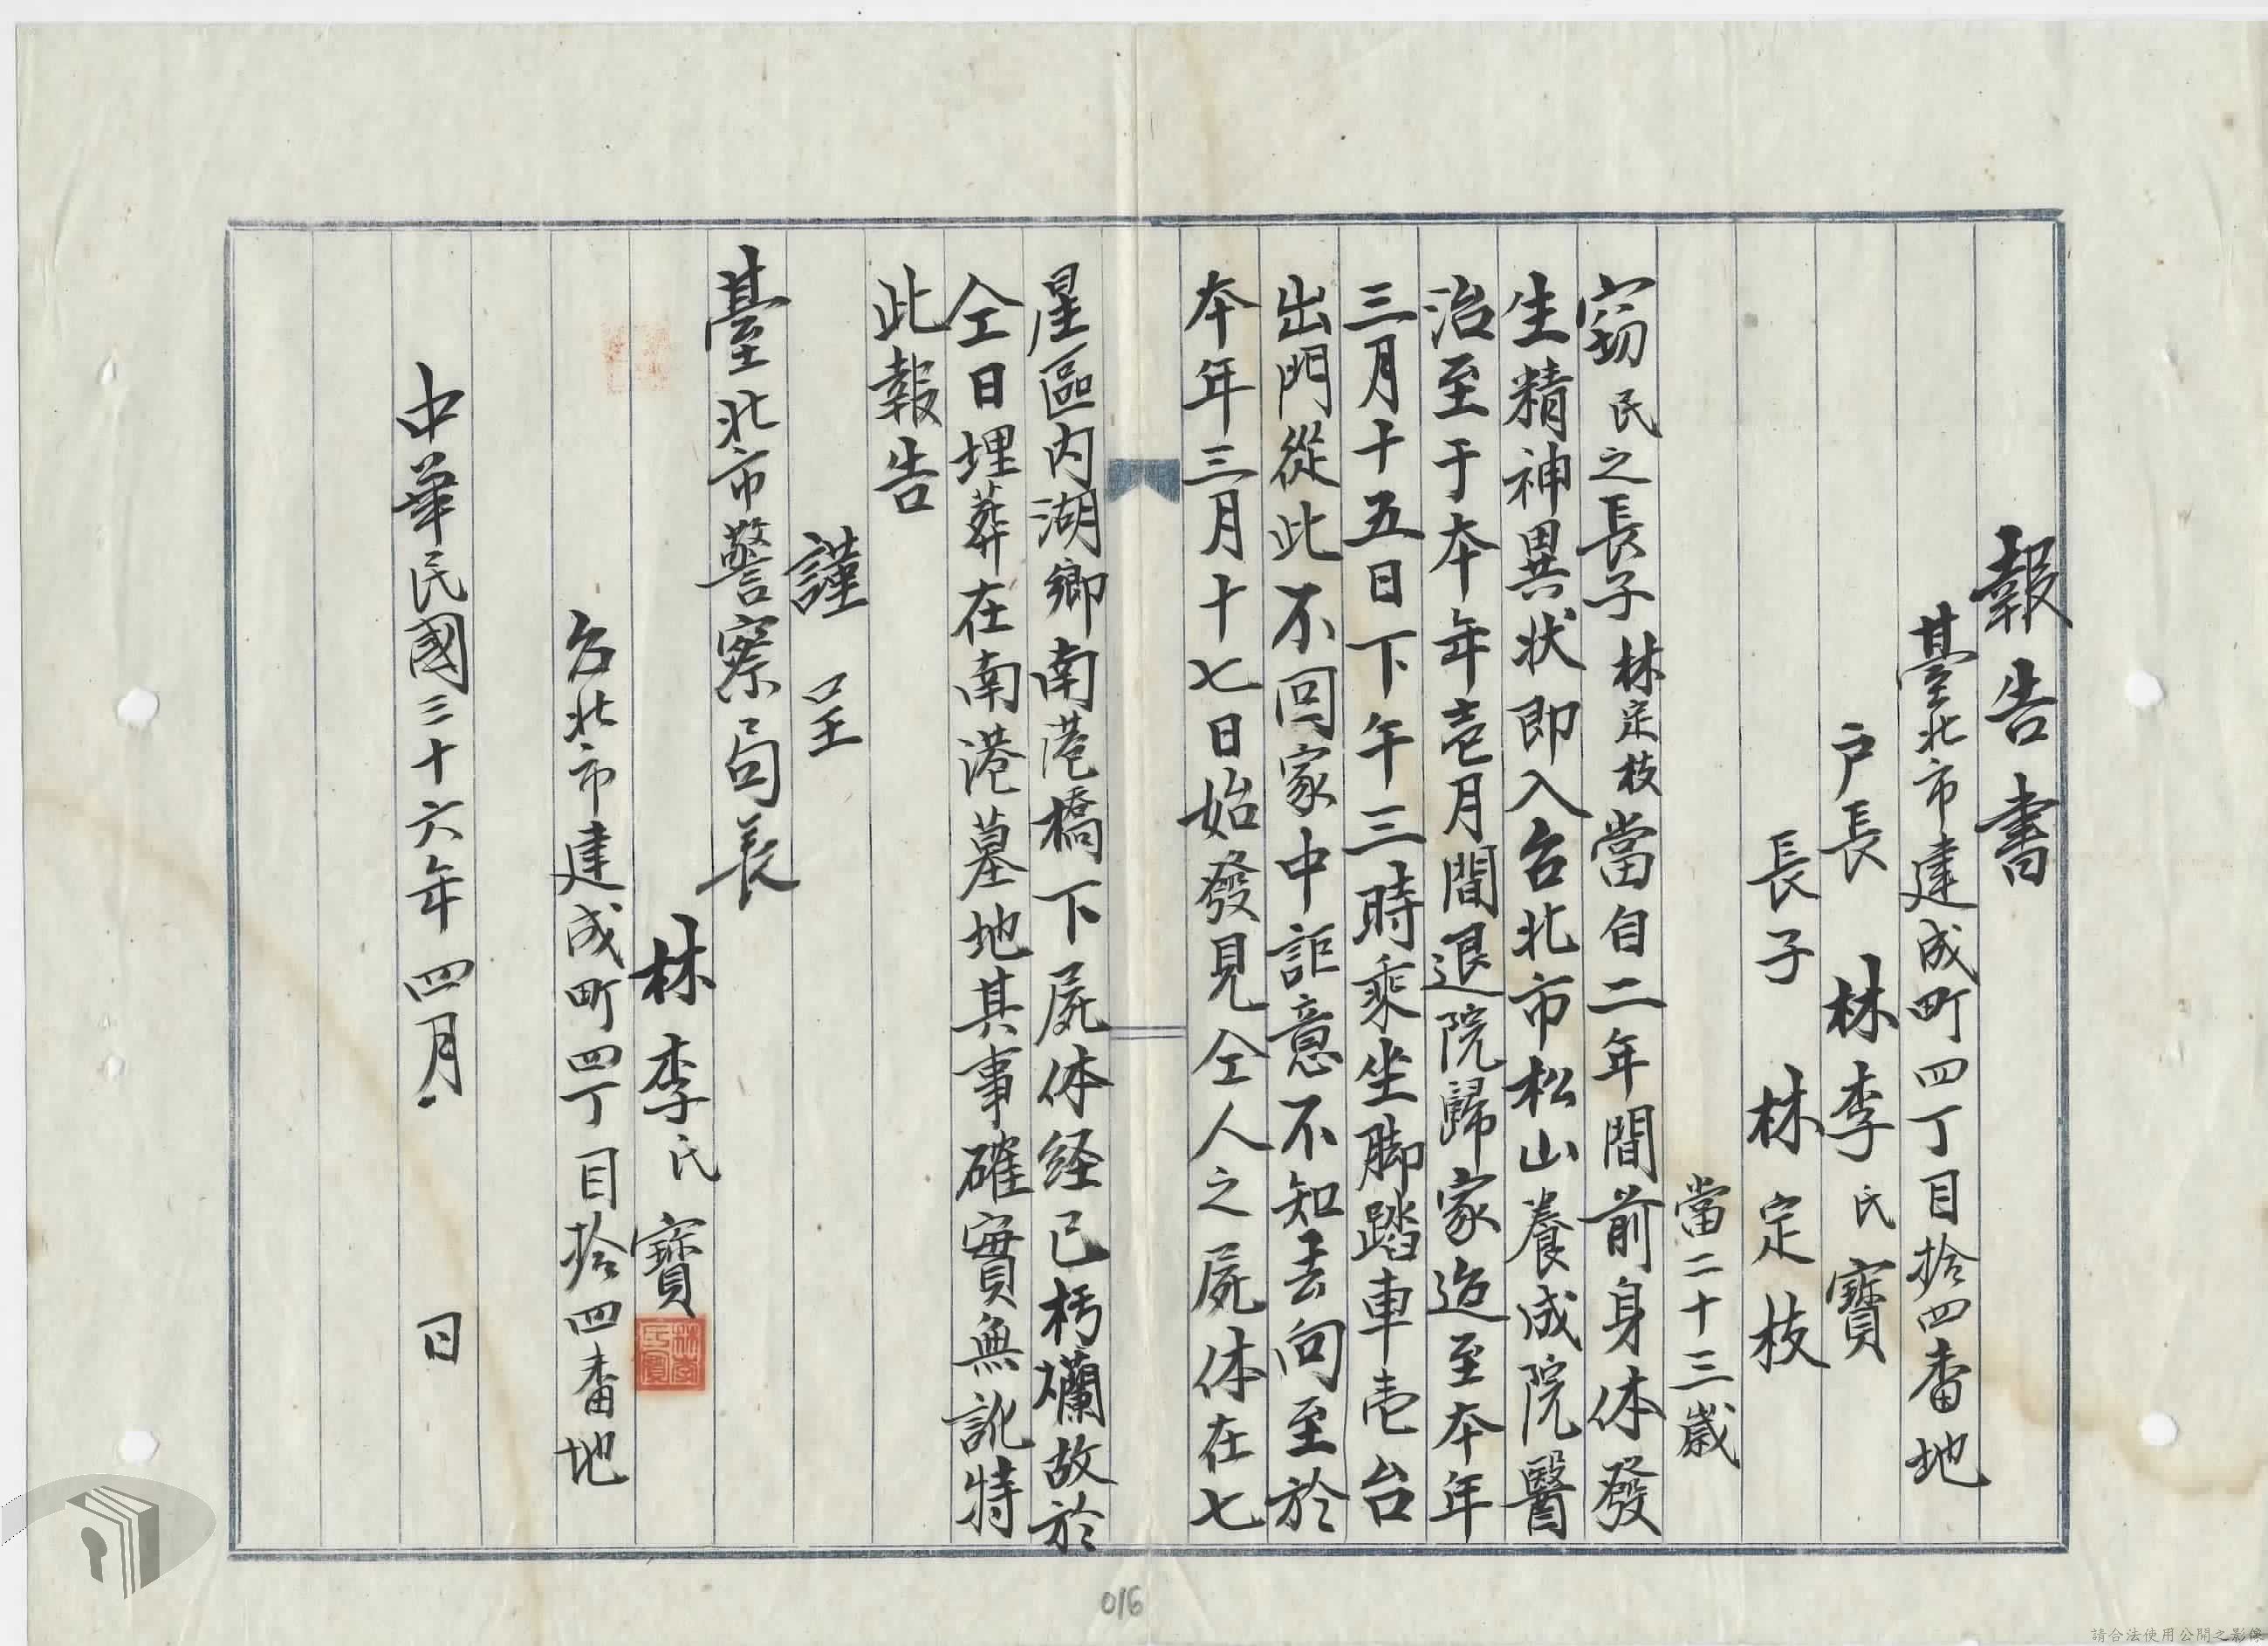 報告書
臺北市建成町四丁目拾四番地
户長 林李氏寶
長子 林定枝
當二十三歲
窃民之長子林定枝當自二年間前身体發
生精神異状即入台北市松山養成院醫
治至于本年壱月間退院歸家迨至本年
三月十五日下午三時乘坐脚踏車壱台
出門從此不回家中詎意不知去向至於
本年三月十七日始發見仝人之屍体在七
星區内湖鄉南港橋下屍体経已朽爛故於
仝日埋葬在南港墓地其事確實無訛特
此報告
謹呈
臺北市警察局長
林李氏寶
林李氏寶
台北市建成町四丁目拾四番地
中華民國三十六年四月 日
016
請合法使用公開之影像